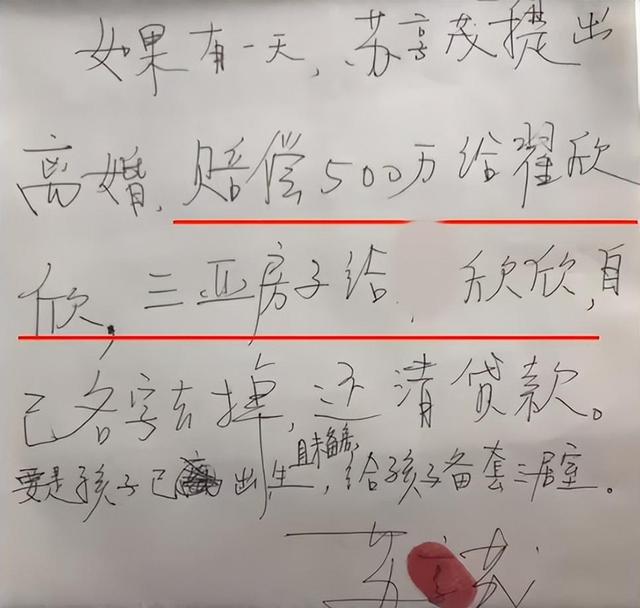 如果有一天,苏享茂提出
离婚,赔偿500万给翟欣
欣,三亚房子给 欣欣,自
己名字去掉,还清贷款。
要是孩子已出生,且未备房,给孩子备套三居室。
苏享茂